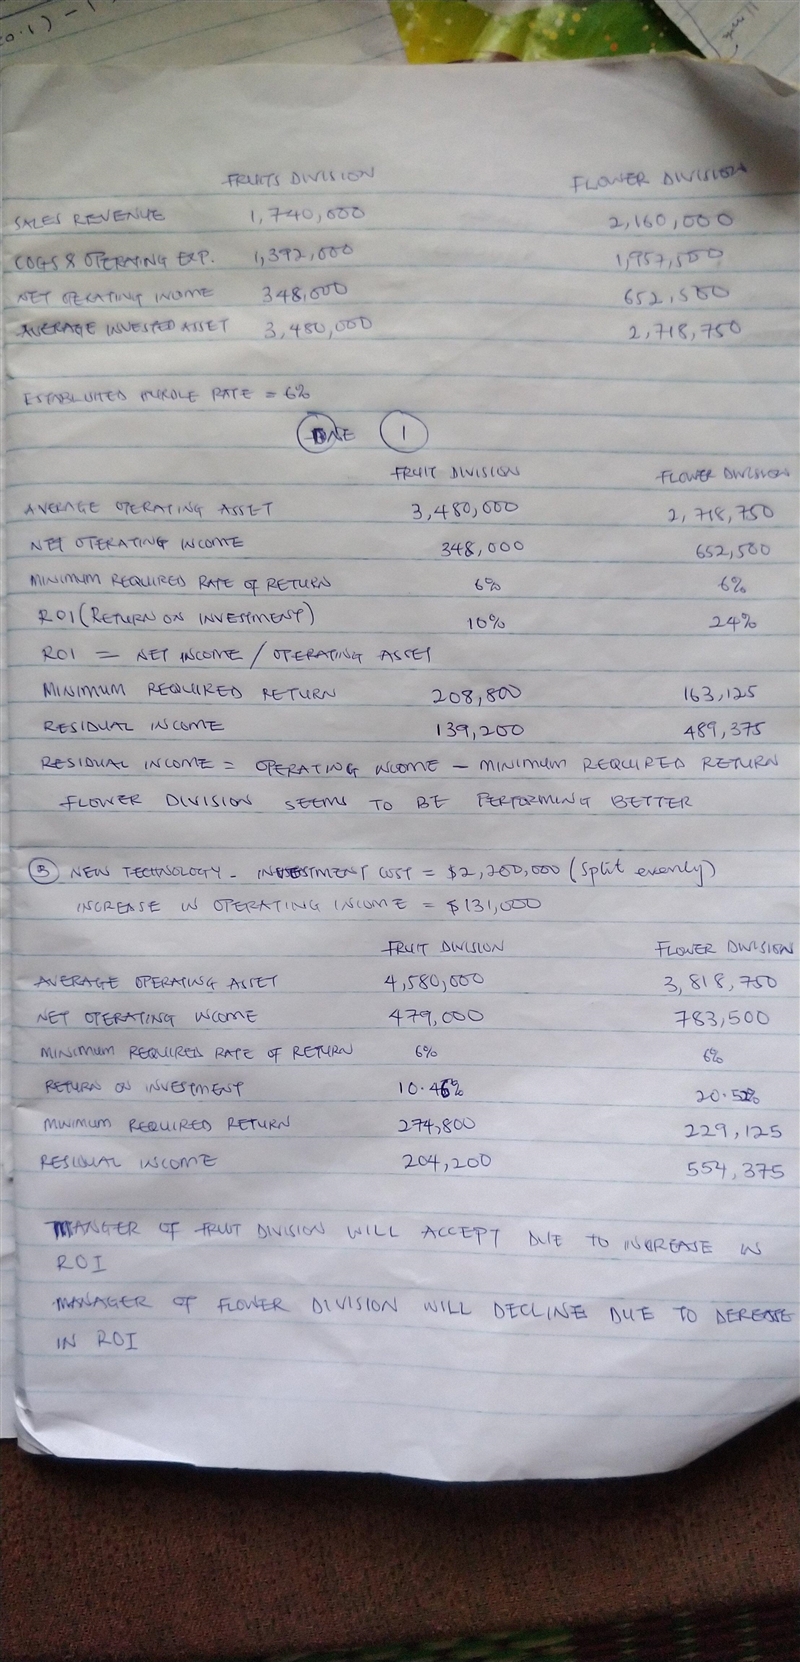 FRUITS DIVISION FLOWER DIVISION
SALES REVENUE 1,740,000 2,160,000
COGS & OPERATING EXP. 1,392,000 1,957,500
NET OPERATING INCOME 348,000 652,500
AVERAGE INVESTED ASSET 3,480,000 2,718,750
ESTABLISHED HURDLE RATE = 6%
ONE 1
FRUIT DIVISION FLOWER DIVISION
AVERAGE OPERATING ASSET 3,480,000 2,718,750
NET OPERATING INCOME 348,000 652,500
MINIMUM REQUIRED RATE OF RETURN 6% 6%
ROI (RETURN ON INVESTMENT) 10% 24%
ROI = NET INCOME / OPERATING ASSET
MINIMUM REQUIRED RETURN 208,800 163,125
RESIDUAL INCOME 139,200 489,375
RESIDUAL INCOME = OPERATING INCOME - MINIMUM REQUIRED RETURN
FLOWER DIVISION SEEMS TO BE PERFORMING BETTER
3 NEW TECHNOLOGY - INVESTMENT COST = $2,200,000 (split evenly)
INCREASE IN OPERATING INCOME = $131,000
FRUIT DIVISION FLOWER DIVISION
AVERAGE OPERATING ASSET 4,580,000 3,818,750
NET OPERATING INCOME 479,000 783,500
MINIMUM REQUIRED RATE OF RETURN 6% 6%
RETURN ON INVESTMENT 10.46% 20.52%
MINIMUM REQUIRED RETURN 274,800 229,125
RESIDUAL INCOME 204,200 554,375
MANGER OF FRUIT DIVISION WILL ACCEPT DUE TO INCREASE IN
ROI
MANAGER OF FLOWER DIVISION WILL DECLINE DUE TO DEREASE
IN ROI